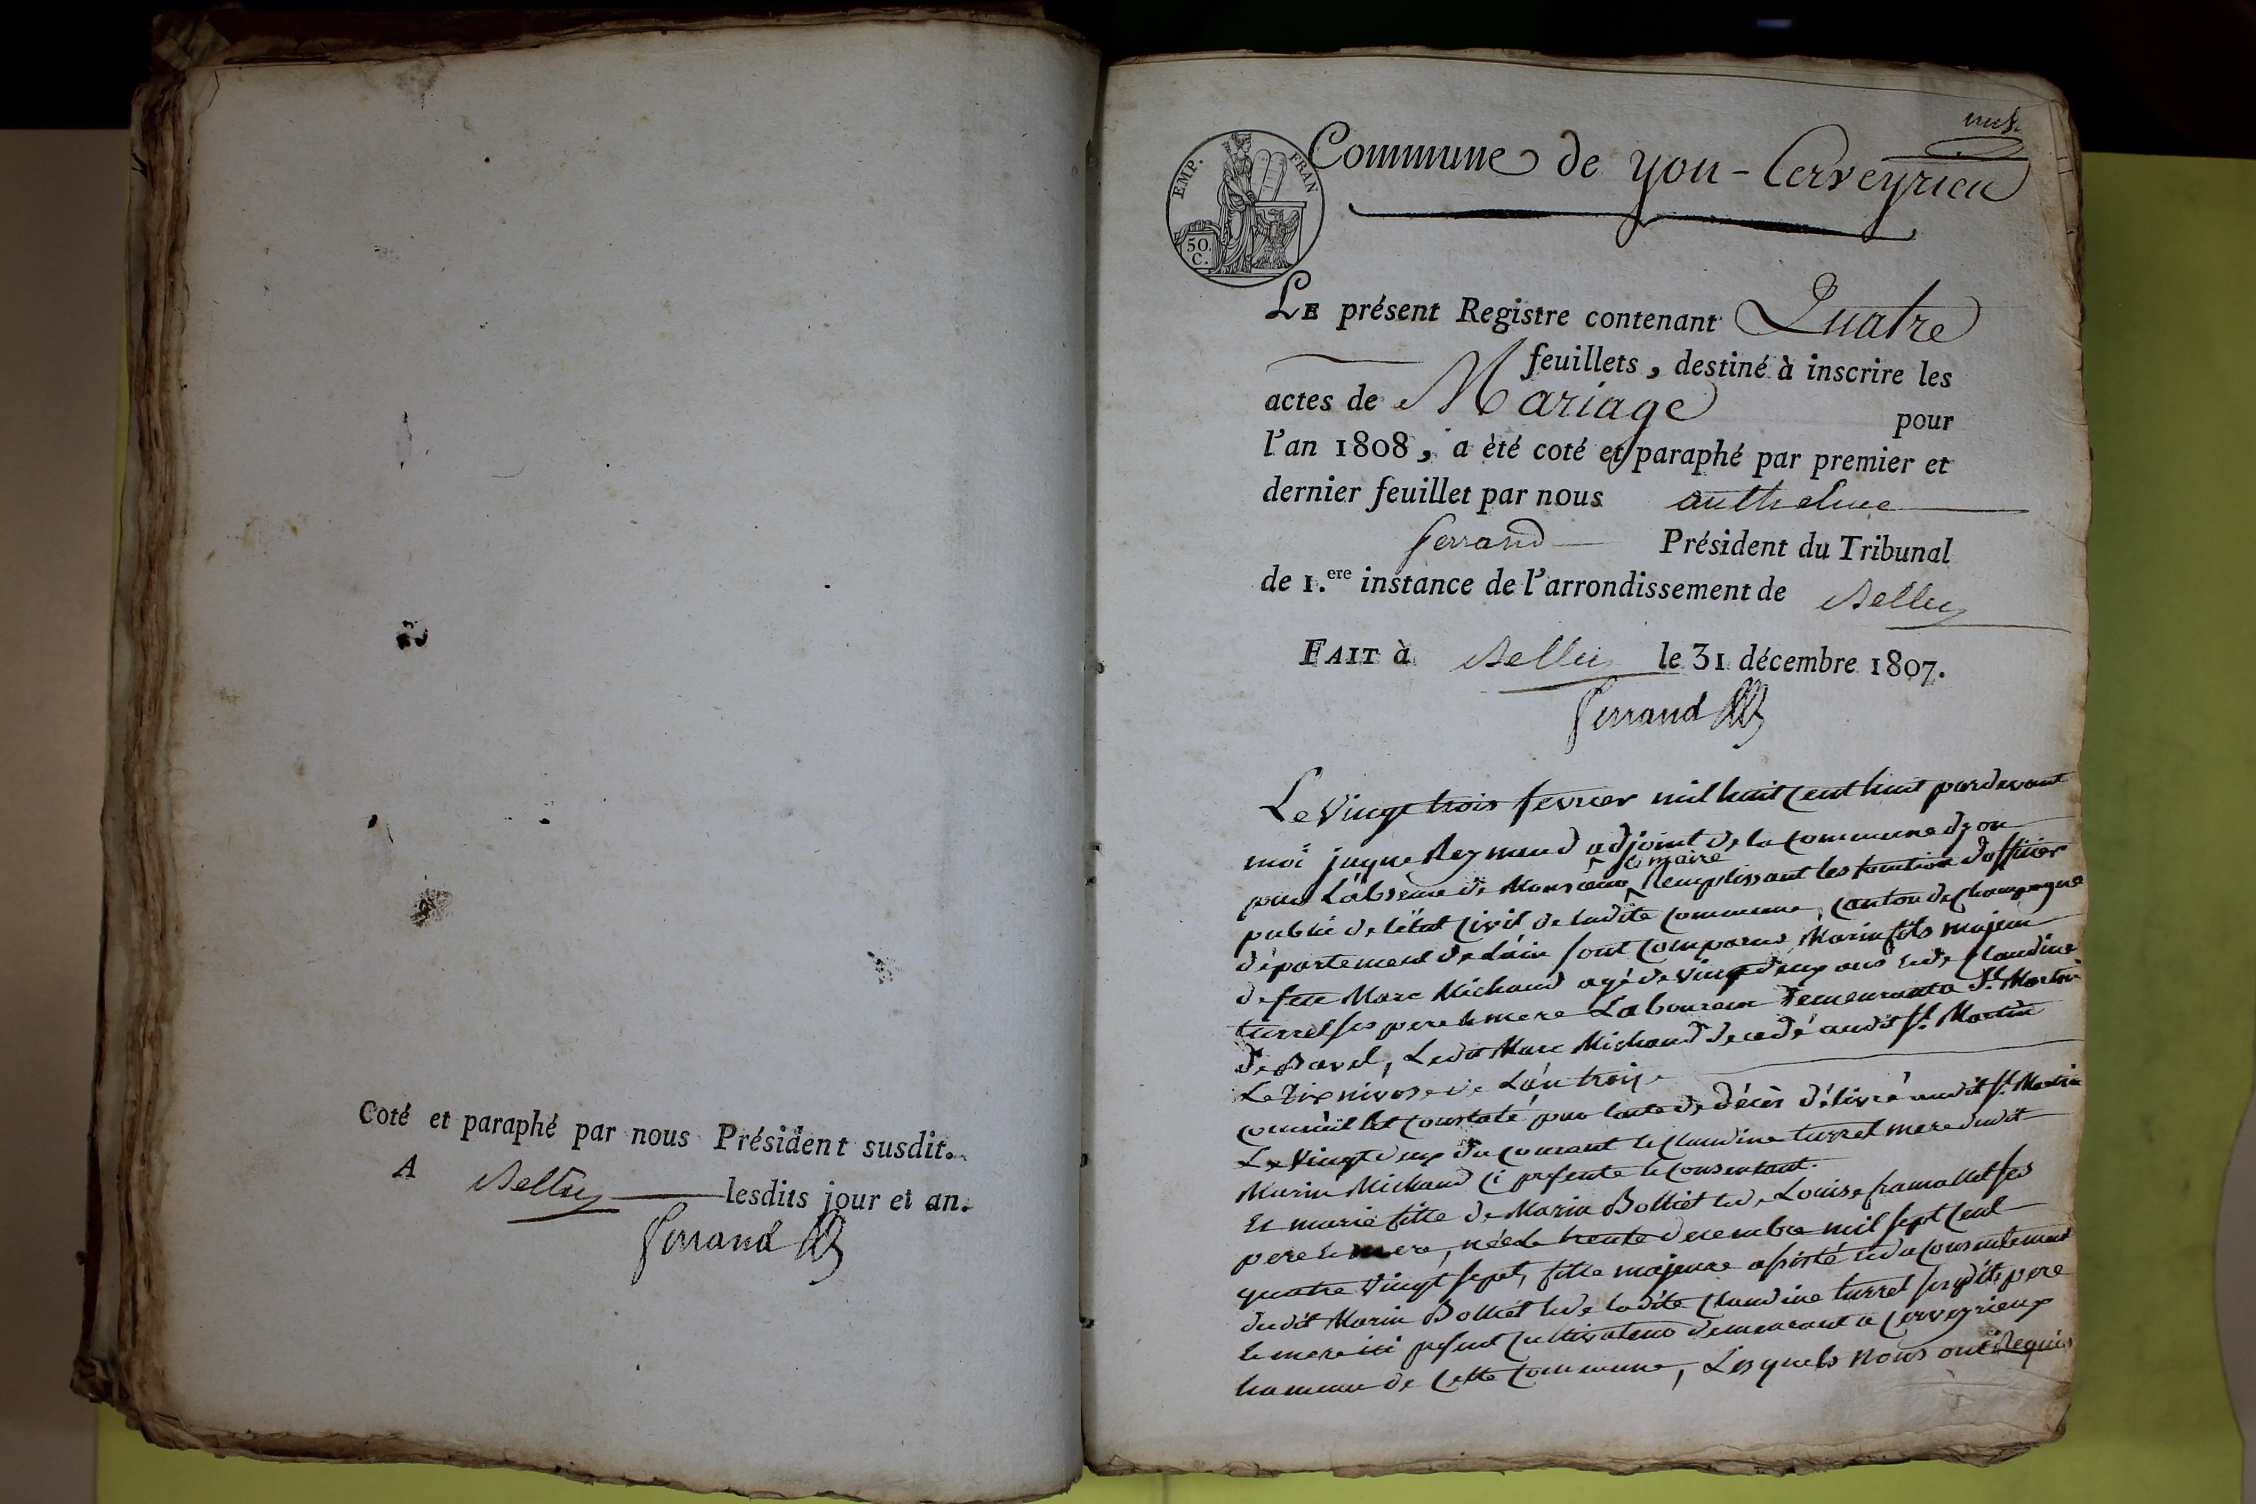 Coté et paraphé par nous Président susdit.
A Belley lesdits jour et an.
Ferrand
EMP. FRAN
50. C.
Commune de yon - Cerveyrieu
LE présent Registre contenant Quatre
feuillets, destiné à inscrire les
actes de Mariage pour
l'an 1808, a èté coté et paraphé par premier et
dernier feuillet par nous anthelme
ferrand Président du Tribunal
de 1.ere instance de l'arrondissement de Belley
FAIT à Belley le 31 décembre 1807.
Ferrand
Le Vingt trois fevrier mil huit Cent huit pardevant
moi Reymaud adjoint de la Commune dyon
pour L'absence de Monsieur le maire Remplissant les fonction dofficier
public de l'état Civil de ladite Commune, Canton de Champagne
département de L'ain sont Comparus Marin fils majeur
de feu Marc Michaud agé de Vingt deux ans et de Claudine
turrel ses pere et mere Laboureur demeurant a St. Martin
de Bavel, Ledit Marc Michaud décedé audit St. Martin
Le Dix nivose de L'an trois
comme il est Constaté par lacte de décès délivré audit St. Martin
Le Vingt deux du Courant et Claudine turrel mere dudit
Marin Michaud ci présente et Consentant.
Et marie fille de Marin Bolliet et de Louise ses
pere et mere, née le trente decembre mil sept Cent
quatre Vingt sept, fille majeure assisté et du Consentement
dudit Marin Bolliet et de ladite Claudine turrel sesdits pere
et mere ici présent Cultivateurs demeurant a Cerveyrieux
hameau de Cette Commune, Lesquels nous ont Requis